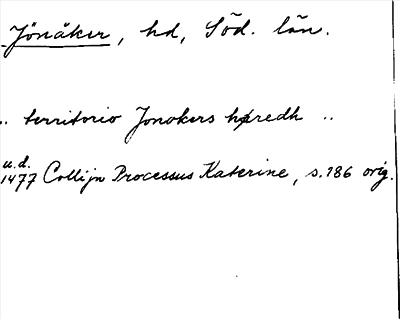 Jönåker, hd, Söd. län.
.. territorio Jonokers hæredh ..
u.d.
1477 Collijn Processus Katerine, s. 186 orig.